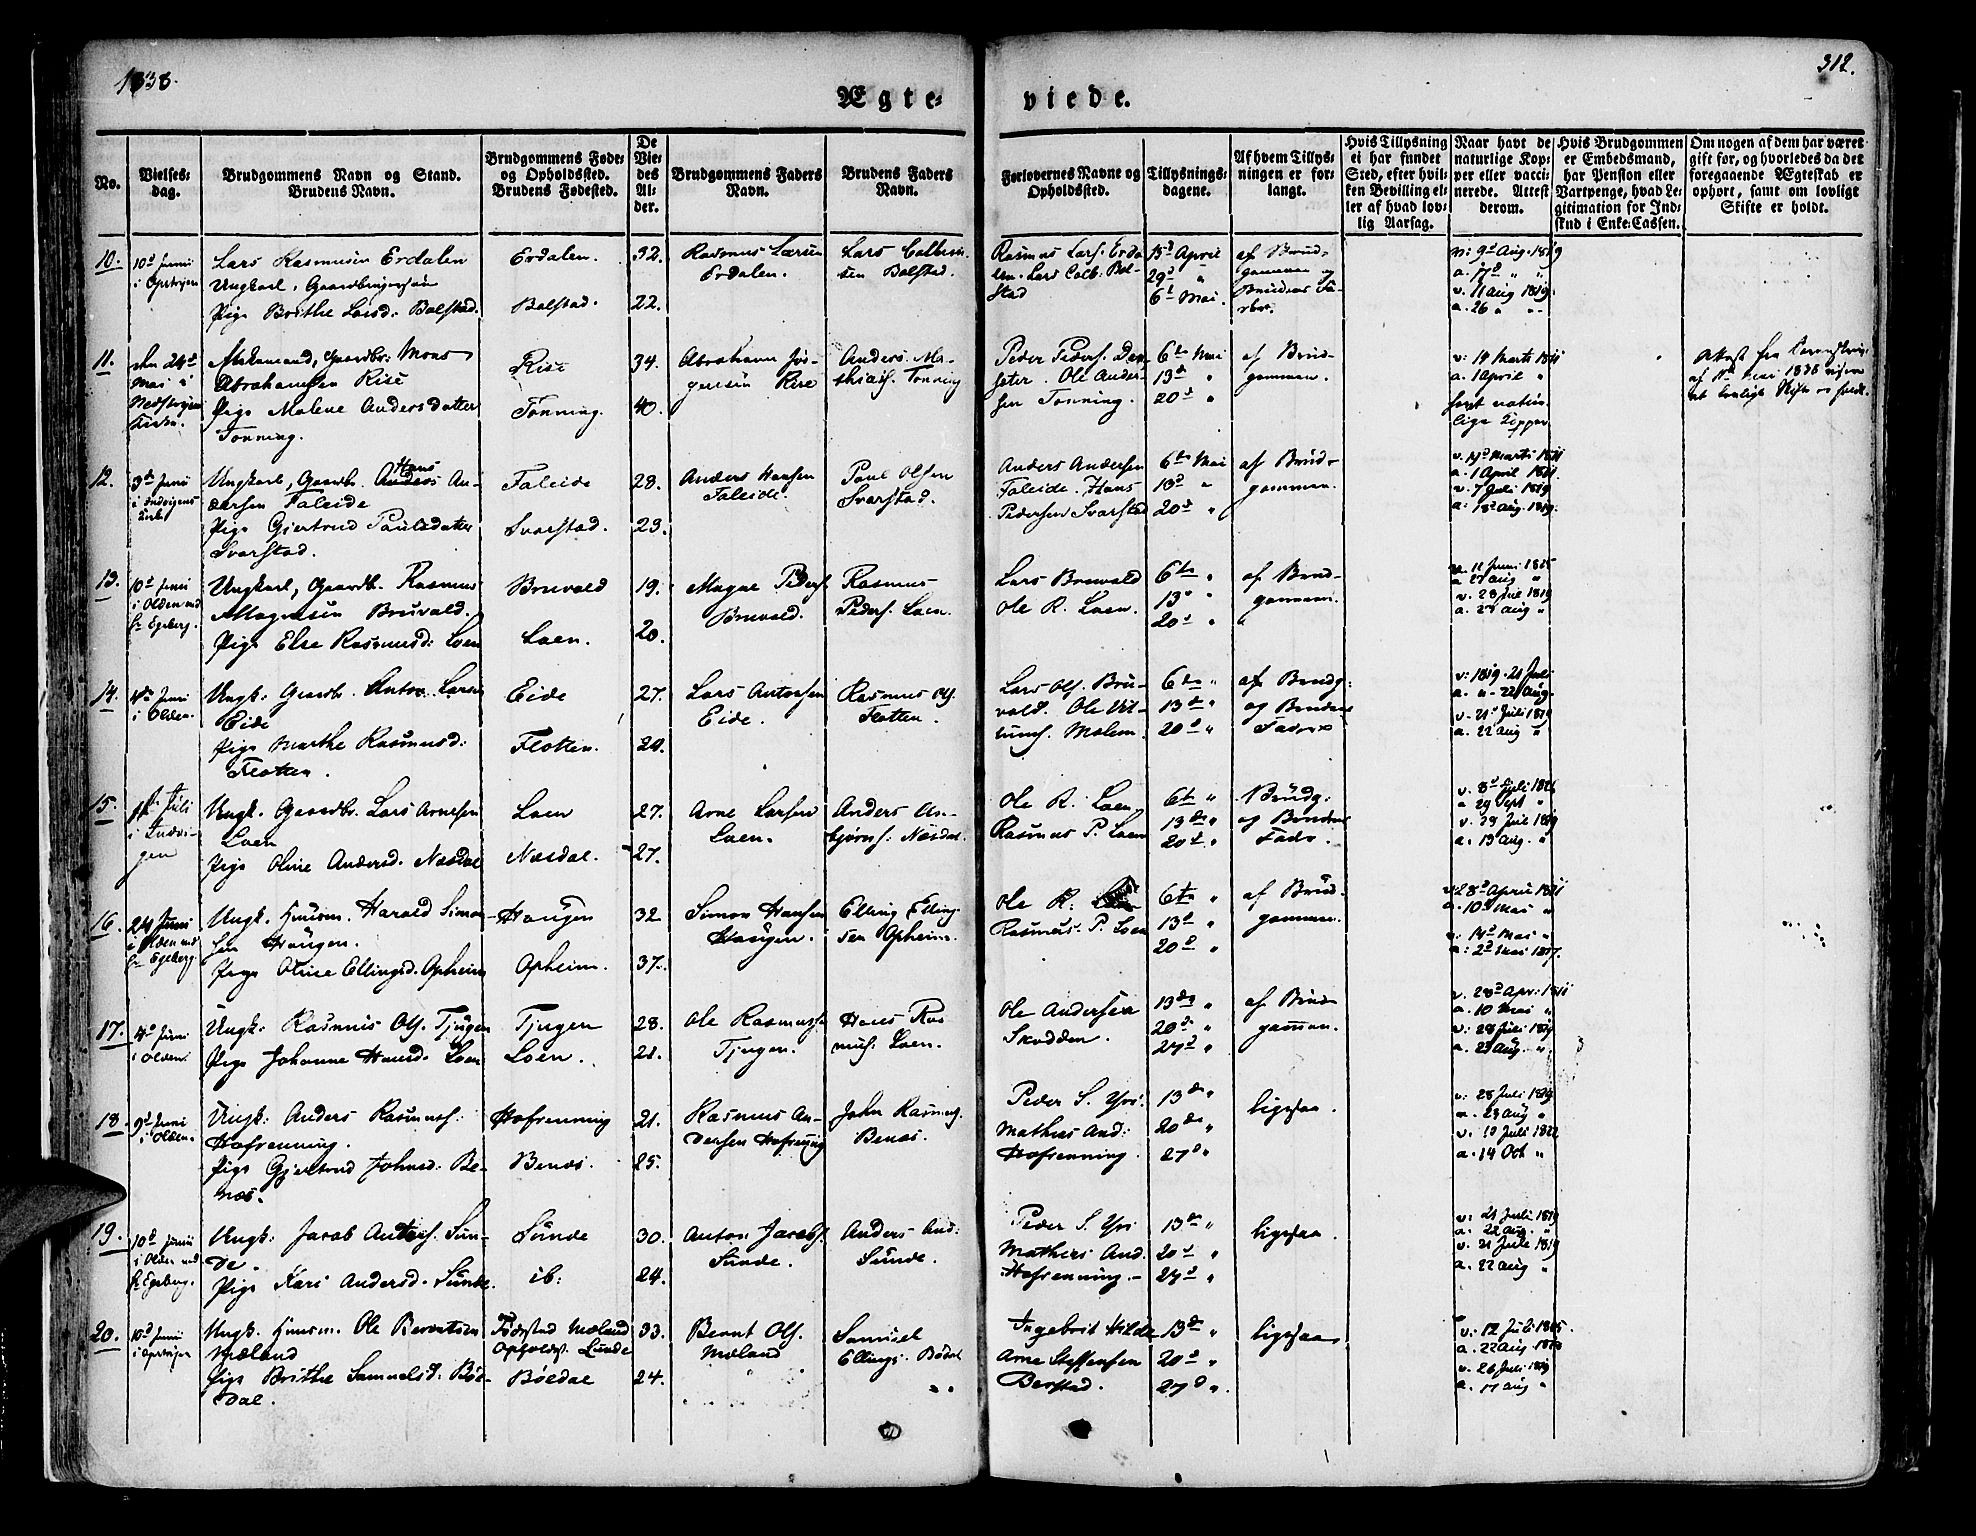 1838.
312.
Ægte-
viede.
No.
Vielses-
dag.
Brudgommens Navn og Stand.
Brudens Navn.
Brudgommens Føde-
og Opholdssted.
Brudens Fødested.
De
Vie-
des
Al-
der.
Brudgommens Faders
Navn.
Brudens Faders
Navn.
Forlovernes Navne og
Opholdssted.
Tillysnings-
dagene.
Af hvem Tillys-
ningen er for-
langt.
Hvis Tillysning
ei har fundet
Sted, efter hvil-
ken Bevilling el-
ler af hvad lov-
lig Aarsag.
Naar havt de
naturlige Kop-
per eller vacci-
nerede. Attest
derom.
Hvis Brudgommen
er Embedsmand,
har Pension eller
Vartpenge, hvad Le-
gitimation for Ind-
skud i Enke-Cassen.
Om nogen af dem har været
gift før, og hvorledes da det
foregaaende Ægteskab er
ophørt, samt om lovligt
Skifte er holdt.
10.
10d Juni
i Opstryn
Lars Rasmusen Erdalen
Ungkarl, Gaardbrugersøn
Pige Brithe Larsd: Bolstad.
Erdalen.
Bolstad.
32.
22.
Rasmus Larsen
Erdalen.
Lars
sen Bolstad.
Rasmus Lars. Erda
len. Lars Colb: Bol-
stad
15d April
29d "
6t Mai.
af Brud-
gommen og
Brudens Fa-
der.
v: 9d Aug. 1819
a. 17d " "
v. 11 Aug 1819.
a. 26 " "
11.
den 24d
Mai i
Nedstryns
Kirke.
Enkemand, Gaardbr: Mons
Abrahamsen Rise
Pige Malene Andersdatter
Tonning.
Rise
Tonning.
34.
40.
Abraham Jør-
gensen Rise
Anders Ma-
thias. Tonning
Peder Peders. Dør-
seter. Ole Ander-
sen Tonning.
6te Mai
13d "
20d "
af Brud-
gommen.
v: 14 Marts 1811
a. 1 April "
havt natur-
lige Kopper
Attest fra
af 1ste Mai 1838 viser
at lovligt Skifte er holdt.
12.
3d Juni
i Indvigens
Kirke
Ungkarl, Gaardb. Hans An-
dersen Faleide
Pige Gjertrud Paulsdatter
Svarstad.
Faleide
Svarstad.
28.
23.
Anders Hansen
Faleide.
Paul Olsen
Svarstad.
Anders Andersen
Faleide. Hans
Pedersen Svarstad
6te Mai
13d "
20d "
af Brud-
gommen.
v. 14d Marts 1811
a. 1 April 1811
v. 7 Juli 1819
a: 18d Aug. 1819.
13.
10d Juni
i Olden ved
Hr Egeberg.
Ungkarl, Gaardb. Rasmus
Magnesen Bruvald.
Pige Else Rasmusd: Loen
Bruvold
Loen.
19.
20.
Magne Peders.
Bruvold.
Rasmus
Peders. Loen.
Lars Bruvald
Ole R. Loen.
6te "
13d "
20d "
af Brud-
gommen.
v. 11 Juni 1825
a 27 aug "
v. 28 Jul 1819
a. 23 aug "
14.
4de Juni
i Olden.
Ungk: Gaardb. Anton Larsen
Eide
Pige Marthe Rasmusd:
Flotten.
Eide
Flotten.
27.
24.
Lars Antonsen
Eide.
Rasmus Ols.
Flotten.
Lars Ols. Bru-
vold. Ole
Molem.
6te "
13de "
20d "
af Brudg:
og Brudens
Fader
v: 1819. 21 Juli
a. " - 22 Aug.
v. 21d Juli 1819
a. 22 aug "
15.
1ste Juli
i Indvi-
gen
Ungk. Gaardbr. Lars Arnesen
Loen
Pige Oline Andersd. Næsdal
Loen
Næsdal.
27.
27.
Arne Larsen
Loen.
Anders As-
bjørns: Næsdal.
Ole R. Loen.
Rasmus P. Loen
6te "
13de "
20d "
Brudg:
og Brudens
Fader.
v. 8d Juli 1826
a 29 Sept "
v. 29 Jul 1819
a. 13 Aug. "
16.
24 Juni
i Olden ved
Hr Egeberg.
Ungk. Huusm. Harald Simon-
sen Haugen.
Pige Oline Ellingsd. Opheim
Haugen
Opheim.
32
37.
Simon Hansen
Haugen.
Elling Elling-
sen Opheim.
Ole R.
Rasmus. P. Loen
6te "
13d "
20d "
af Brud-
gommen.
v. 28d April 1811
a. 10d Mai "
v: 14d Mai "
a: 2d Mai 1817.
17.
4d Juni
i Olden.
Ungk: Rasmus Ols. Tjugen
Pige Johanne Hansd. Loen
Tjugen
Loen.
28.
21.
Ole Rasmuss.
Tjugen.
Hans Ras
mus. Loen.
Ole Andersen
Skodden.
13de "
20de "
27d "
af Brud-
gommen.
v. 28d Apr: 1811
a. 10 Mai "
v: 28 Juli 1819
a. 23 Aug. "
18.
9d Juni
i Olden.
Ungk: Anders Rasmus:
Hofrenning.
Pige Gjertrud Johnsd: Be-
næs.
Hofrenning
Benæs.
21.
25.
Rasmus An-
dersen Hofrening
John Rasmus.
Benæs.
Peder S. Yri.
Mathias And:
Hofrenning.
13de "
20de "
27d "
ligesaa.
v: 28 Juli 1819.
a. 23 Aug "
v. 19 Juli 1822
a. 14 Oct "
19.
10d Juni
i Olden ved
Hr Egeberg.
Ungk: Jacob Antons. Sun-
de.
Pige Kari Andersd. Sunde.
Sunde
ib:
30.
24.
Anton Jacobs.
Sunde.
Anders And:
Sunde.
Peder S. Yri
Mathias And.
Hofrenning.
13de "
20d "
27d "
ligesaa.
v: 21 Juli 1819
a. 22 aug. "
v. 21 Jule 1819
a. 22 aug "
20.
10d Juni
i Opstryn
Ungk. Huusm. Ole Berentsen
Mæland
Pige Brithe Samuelsd. Bø-
dal.
Fødested Mæland
Opholdst. Sunde
Bødal
33.
24.
Bernt Ols.
Mæland
Samuel
Ellings. Bødal
Ingebrit Hilde
Arne Steffensen
Berstad.
13de "
20d "
27d "
ligesaa
v: 12 Juli 1805.
a. 22 Aug
v. 26 Juli 1819
a. 17 aug "